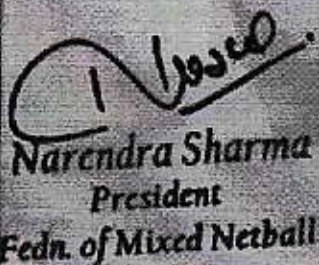 Narendra Sharma
President
Fedn. of Mixed Netball